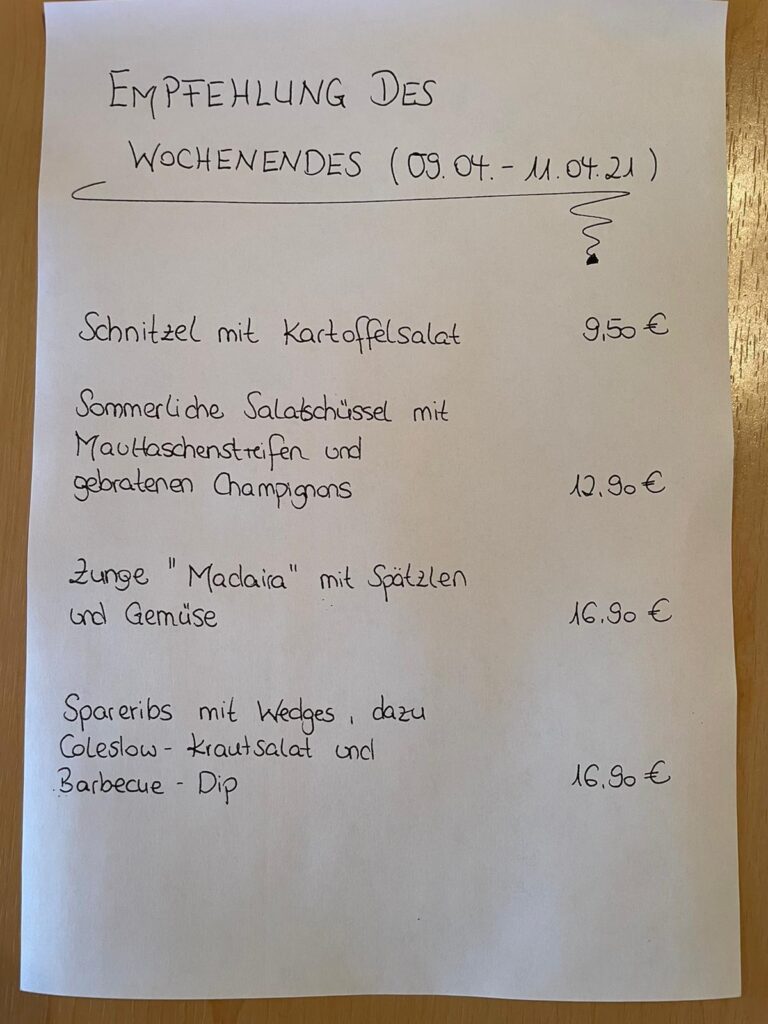 EMPFEHLUNG DES
WOCHENENDES (09.04. - 11.04.21)
Schnitzel mit Kartoffelsalat 9,50 €
Sommerliche Salatschüssel mit
Maultaschenstreifen und
gebratenen Champignons 12.90 €
Zunge "Madaira" mit Spätzlen
und Gemüse 16.90 €
Spareribs mit Wedges, dazu
Coleslow - Krautsalat und
Barbecue - Dip 16.90 €